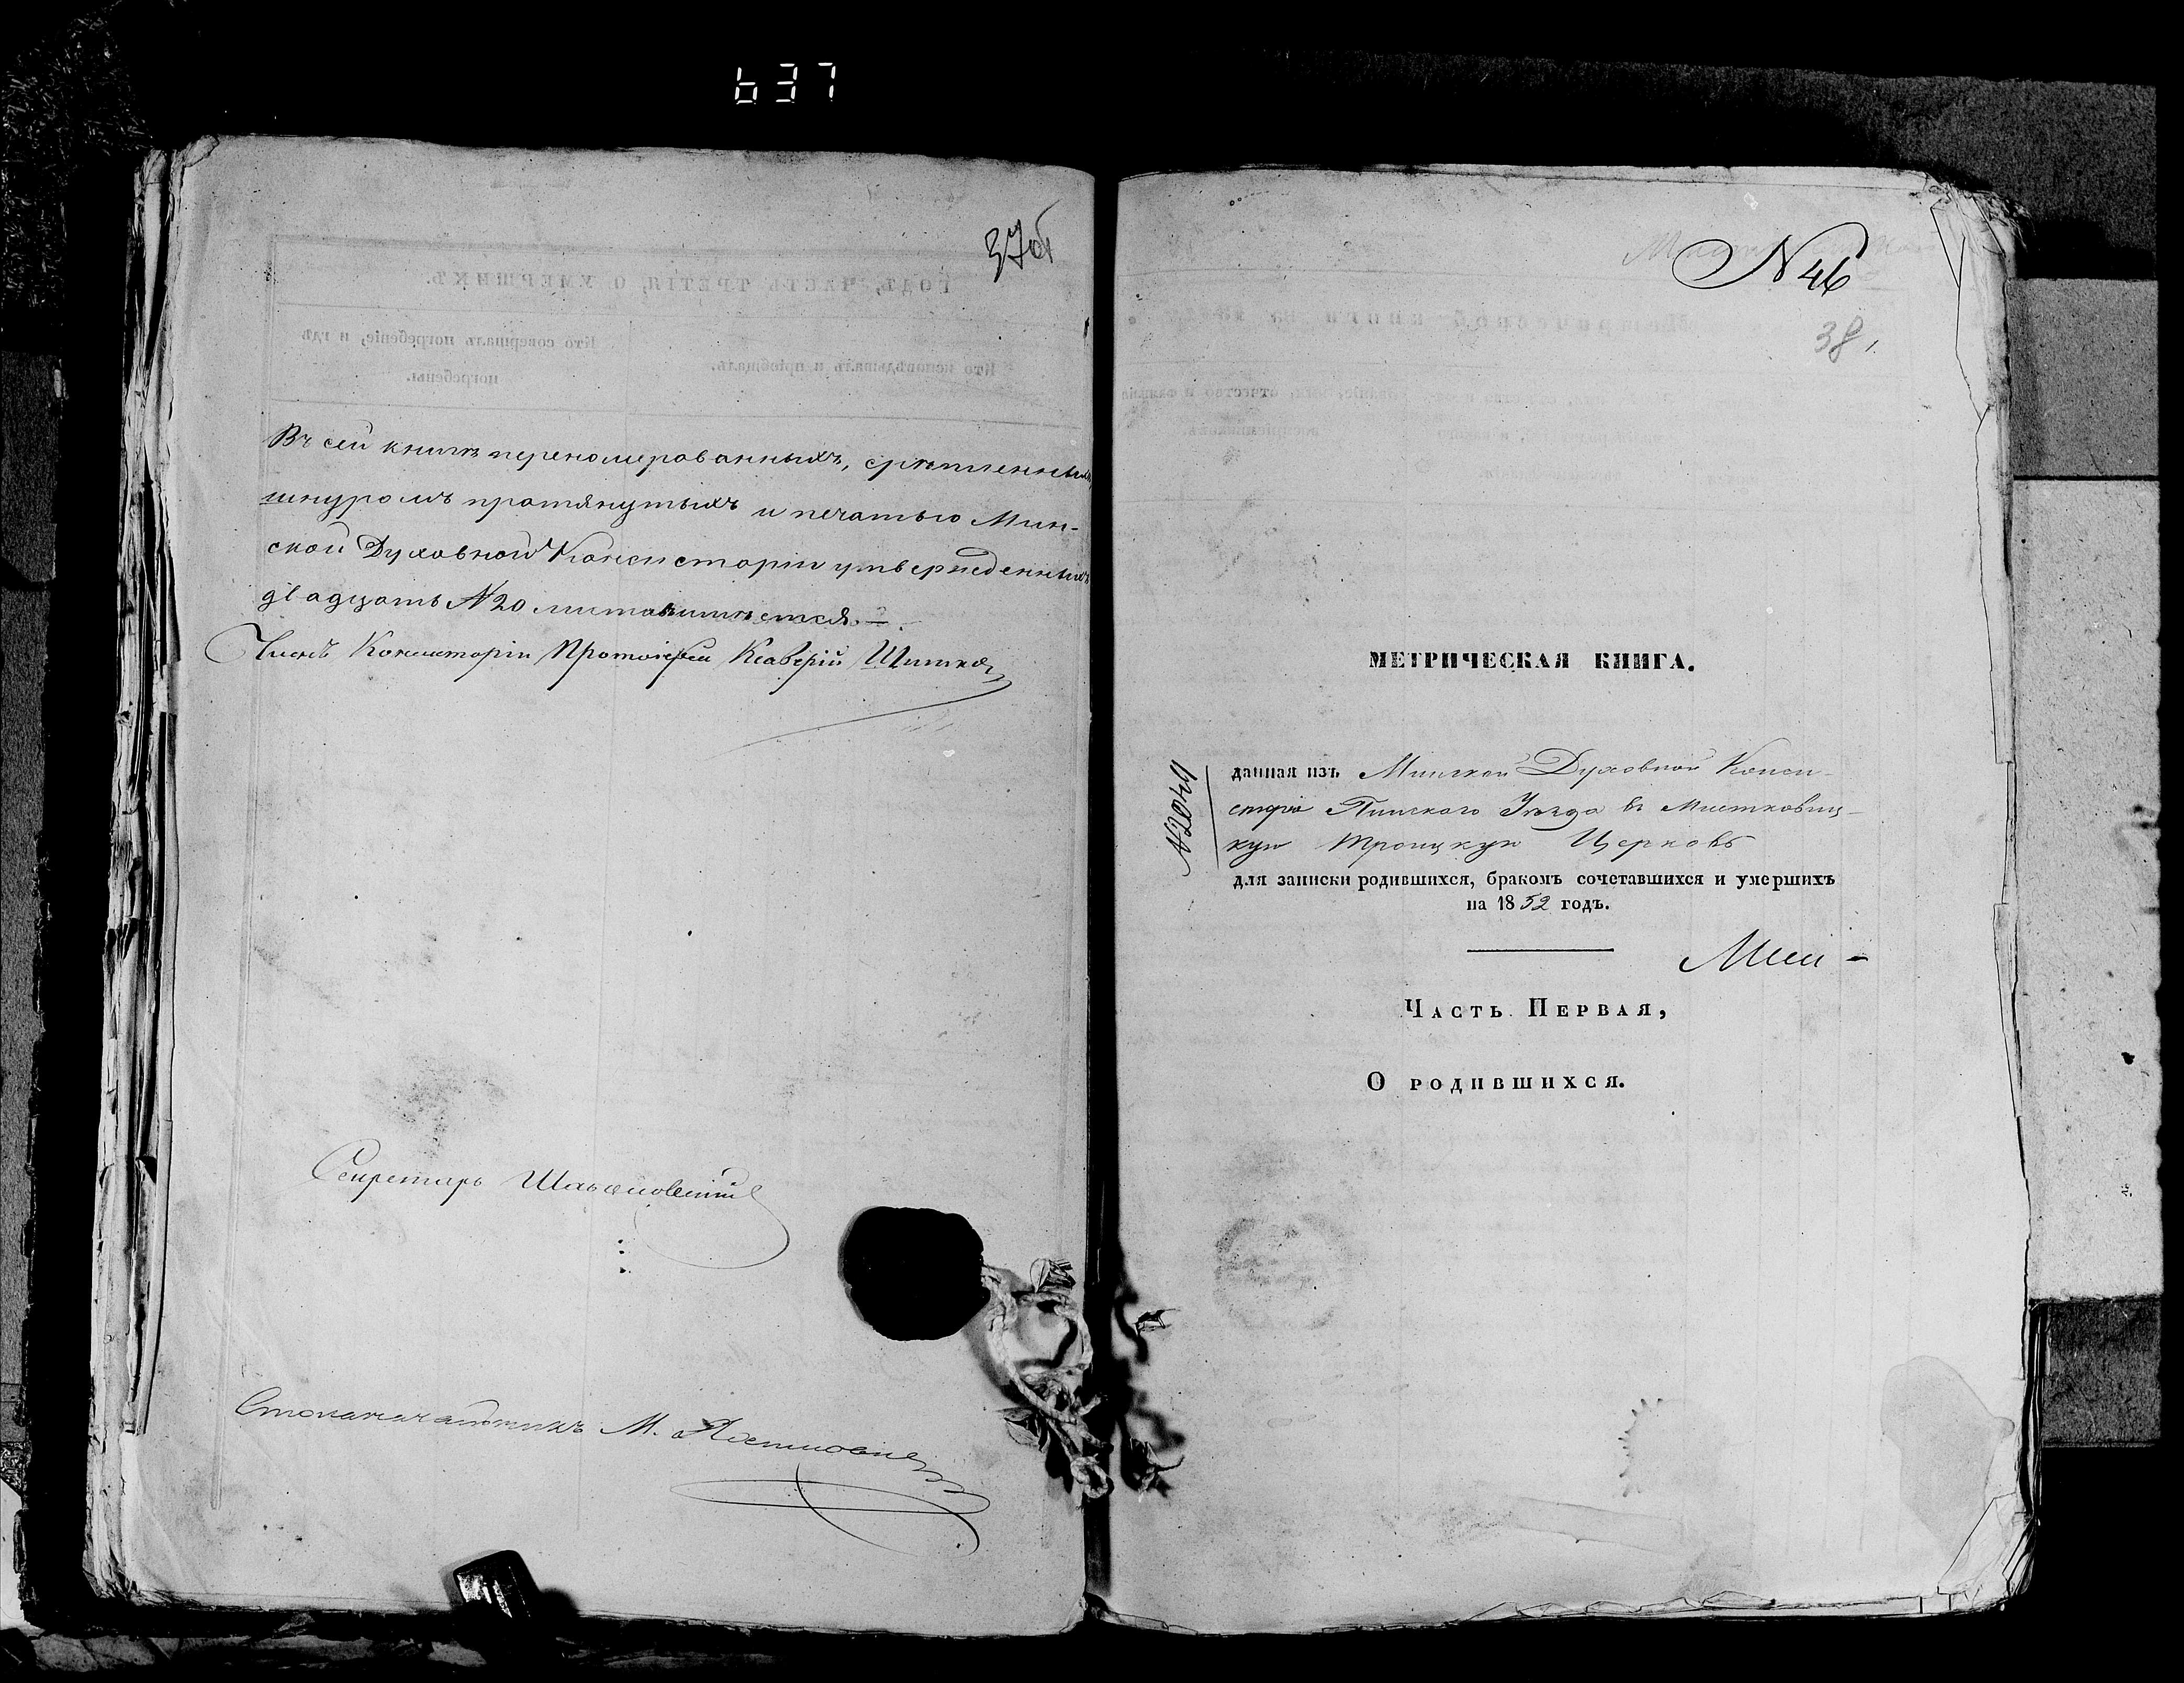 637
37об
Въ сей книгѣ переномерованныхъ, скрѣпленныхъ,
шнуромъ протянутыхъ и печатью Мин-
ской Духовной Консисторіи утвержденныхъ
двадцать №20 листовъ имѣется.
Членъ Консисторіи Протоіерей Ксаверій
Секретарь
Столоначальникъ М.
№ 46
38
МЕТРИЧЕСКАЯ КНИГА.
№2044
данная изъ Минской Духовной Конси-
сторіи Пинскаго Уѣзда въ Мистковиц-
кую Троицкую Церковь
для записки родившихся, бракомъ сочетавшихся и умершихъ
на 1852 годъ.
Часть Первая,
О родившихся.